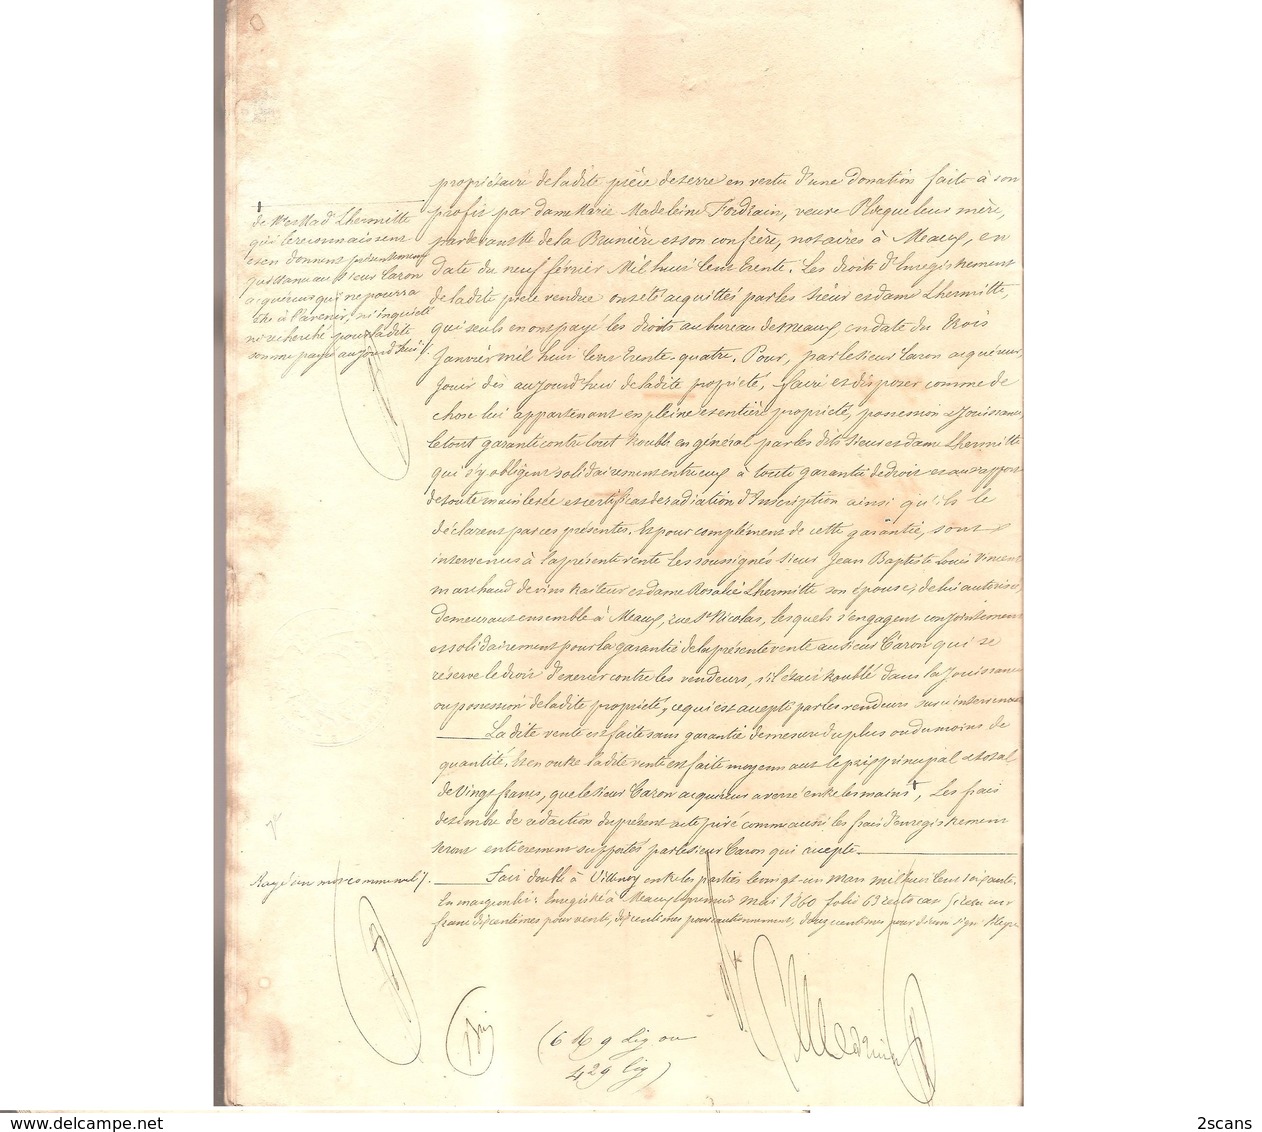 propriétaire de ladite pièce de terre en vertu d'une donation faite à son
profit par dame Marie Madeleine Fordrain, veuve Plocque leur mère,
pardevant Me de la Brunière et son confrère, notaires à Meaux, en
date du neuf février Mil huit cent trente. Les droits d'Enregistrement
de ladite pièce vendue ont été acquittés par les sieur et dame Lhermitte,
qui seuls en ont payé les droits au bureau de Meaux, en date du trois
Janvier mil huit cent trente-quatre. Pour, par le sieur Caron acquéreur,
Jouir dès aujourd'hui de ladite propriété, faire et disposer comme de
chose lui appartenant en pleine et entière propriété, possession et Jouissance,
le tout garanti contre tout trouble en général par les dits sieur et dame Lhermitte
qui s'y obligent solidairement entre eux à toute garantie de droit et au rapport
de toute mainlevée et certificat de radiation d'Inscription ainsi qu'ils le
déclarent par ces présentes. Et pour complément de cette garantie, sont
intervenus à la présente vente les soussignés sieur Jean Baptiste Louis Vincent
marchand de vins traiteur et dame Rosalie Lhermitte son épouse, de lui autorisée,
demeurant ensemble à Meaux, rue St Nicolas, lesquels s'engagent conjointement
et solidairement pour la garantie de la présente vente au sieur Caron qui se
réserve le droit d'exercer contre les vendeurs, s'il était troublé dans la Jouissance
ou possession de ladite propriété, ce qui est accepté par les vendeurs
La dite vente est faite sans garantie de mesure du plus ou du moins de
quantité. Et en outre ladite vente est faite moyennant le prix principal et total
de Vingt francs, que le sieur Caron acquéreur a versé entre les mains, Les frais
de timbre de rédaction du présent acte comme aussi les frais d'enregistrement
seront entièrement supportés par le sieur Caron qui accepte.
Fait double à Villenoy entre les parties le vingt-un Mars mil huit cent soixante.
En marge est écrit: Enregistré à Meaux le premier mai 1860 folio 63 recto case reçu un
franc dix centimes pour vente, dix centimes pour cautionnement, douze centimes pour décime signé
de Mr et Mad. Lhermitte
qui le reconnaissent
et en donnent présentement
quittance au sieur Caron
acquéreur qui ne pourra
être à l'avenir, ni inquiété
ni recherché pour ladite
somme payée aujourd'hui /.
Rayé un mot comme nul /.
(6 R 9 lig ou
429 lig)